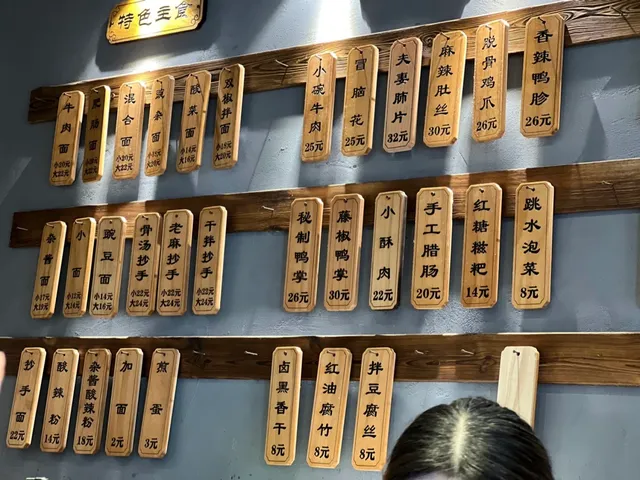 特色主食
牛肉面 小20元 大22元
肥肠面
混合面 小20元 大22元
豇杂面
酸菜面
双椒拌面
小碗牛肉 25元
冒脑花 25元
夫妻肺片 32元
麻辣肚丝 30元
脱骨鸡爪 26元
香辣鸭胗 26元
杂酱面 小17元 大19元
小面
豌豆面 小14元 大16元
骨汤抄手 小22元 大24元
老麻抄手 小22元 大24元
干拌抄手 小22元 大24元
秘制鸭掌 26元
藤椒鸭掌 30元
小酥肉 22元
手工腊肠 20元
红糖糍粑 14元
跳水泡菜 8元
抄手面 22元
酸辣粉 14元
杂酱酸辣粉 18元
加面 2元
煎蛋 3元
卤黑香干 8元
红油腐竹 8元
拌豆腐丝 8元